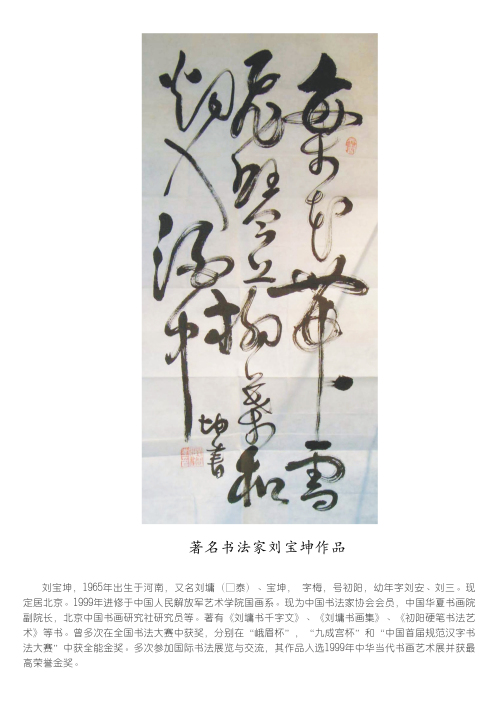 梅花帶雪
飛琴上柳葉和
烟入酒中
坤書
著名书法家刘宝坤作品
刘宝坤，1965年出生于河南，又名刘墉（□泰）、宝坤， 字梅，号初阳，幼年字刘安、刘三。现
定居北京。1999年进修于中国人民解放军艺术学院国画系。现为中国书法家协会会员，中国华夏书画院
副院长，北京中国书画研究社研究员等。著有《刘墉书千字文》、《刘墉书画集》、《初阳硬笔书法艺
术》等书。曾多次在全国书法大赛中获奖，分别在“峨眉杯”，“九成宫杯”和“中国首届规范汉字书
法大赛”中获全能金奖。多次参加国际书法展览与交流，其作品入选1999年中华当代书画艺术展并获最
高荣誉金奖。